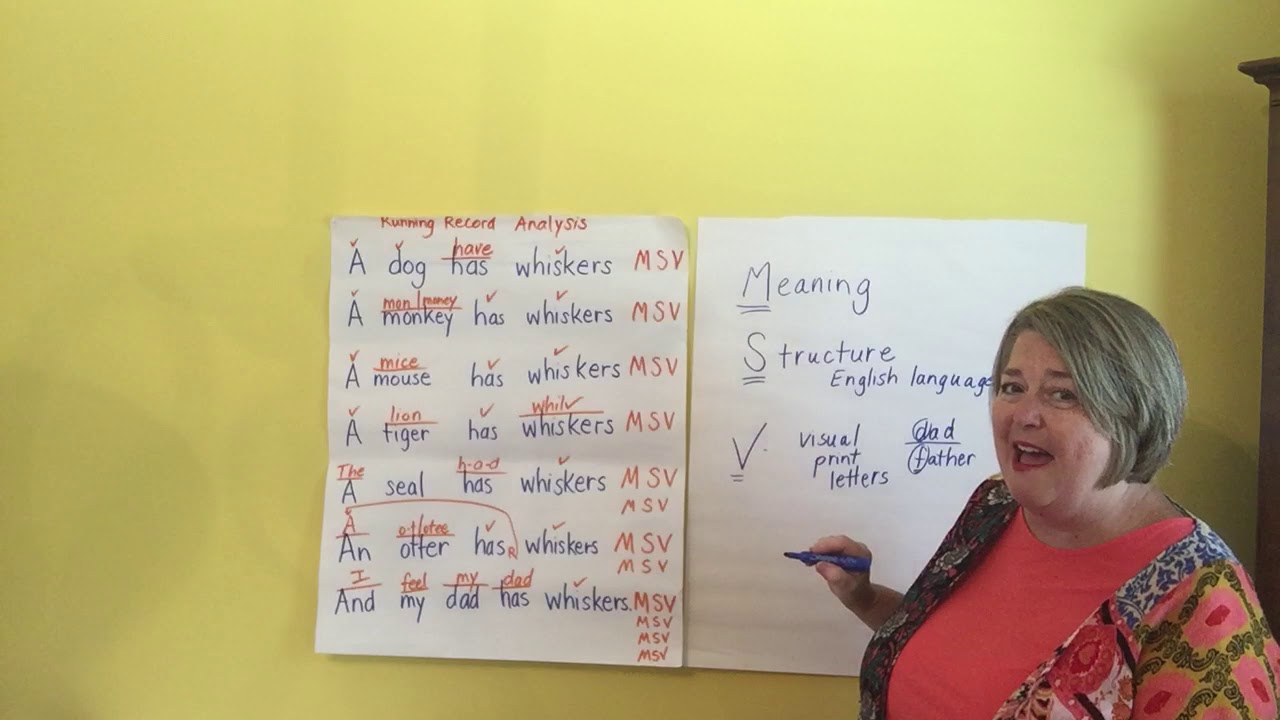 Running Record Analysis
have
A dog has whiskers MSV
mon|money
A monkey has whiskers MSV
mice
A mouse has whiskers MSV
lion whil
A tiger has whiskers MSV
The h-a-d
A seal has whiskers MSV
MSV
A o-t|otee
An otter has R whiskers MSV
MSV
I feel my dad
And my dad has whiskers. MSV
MSV
MSV
MSV
Meaning
Structure
English language
V visual
print
letters
dad
father